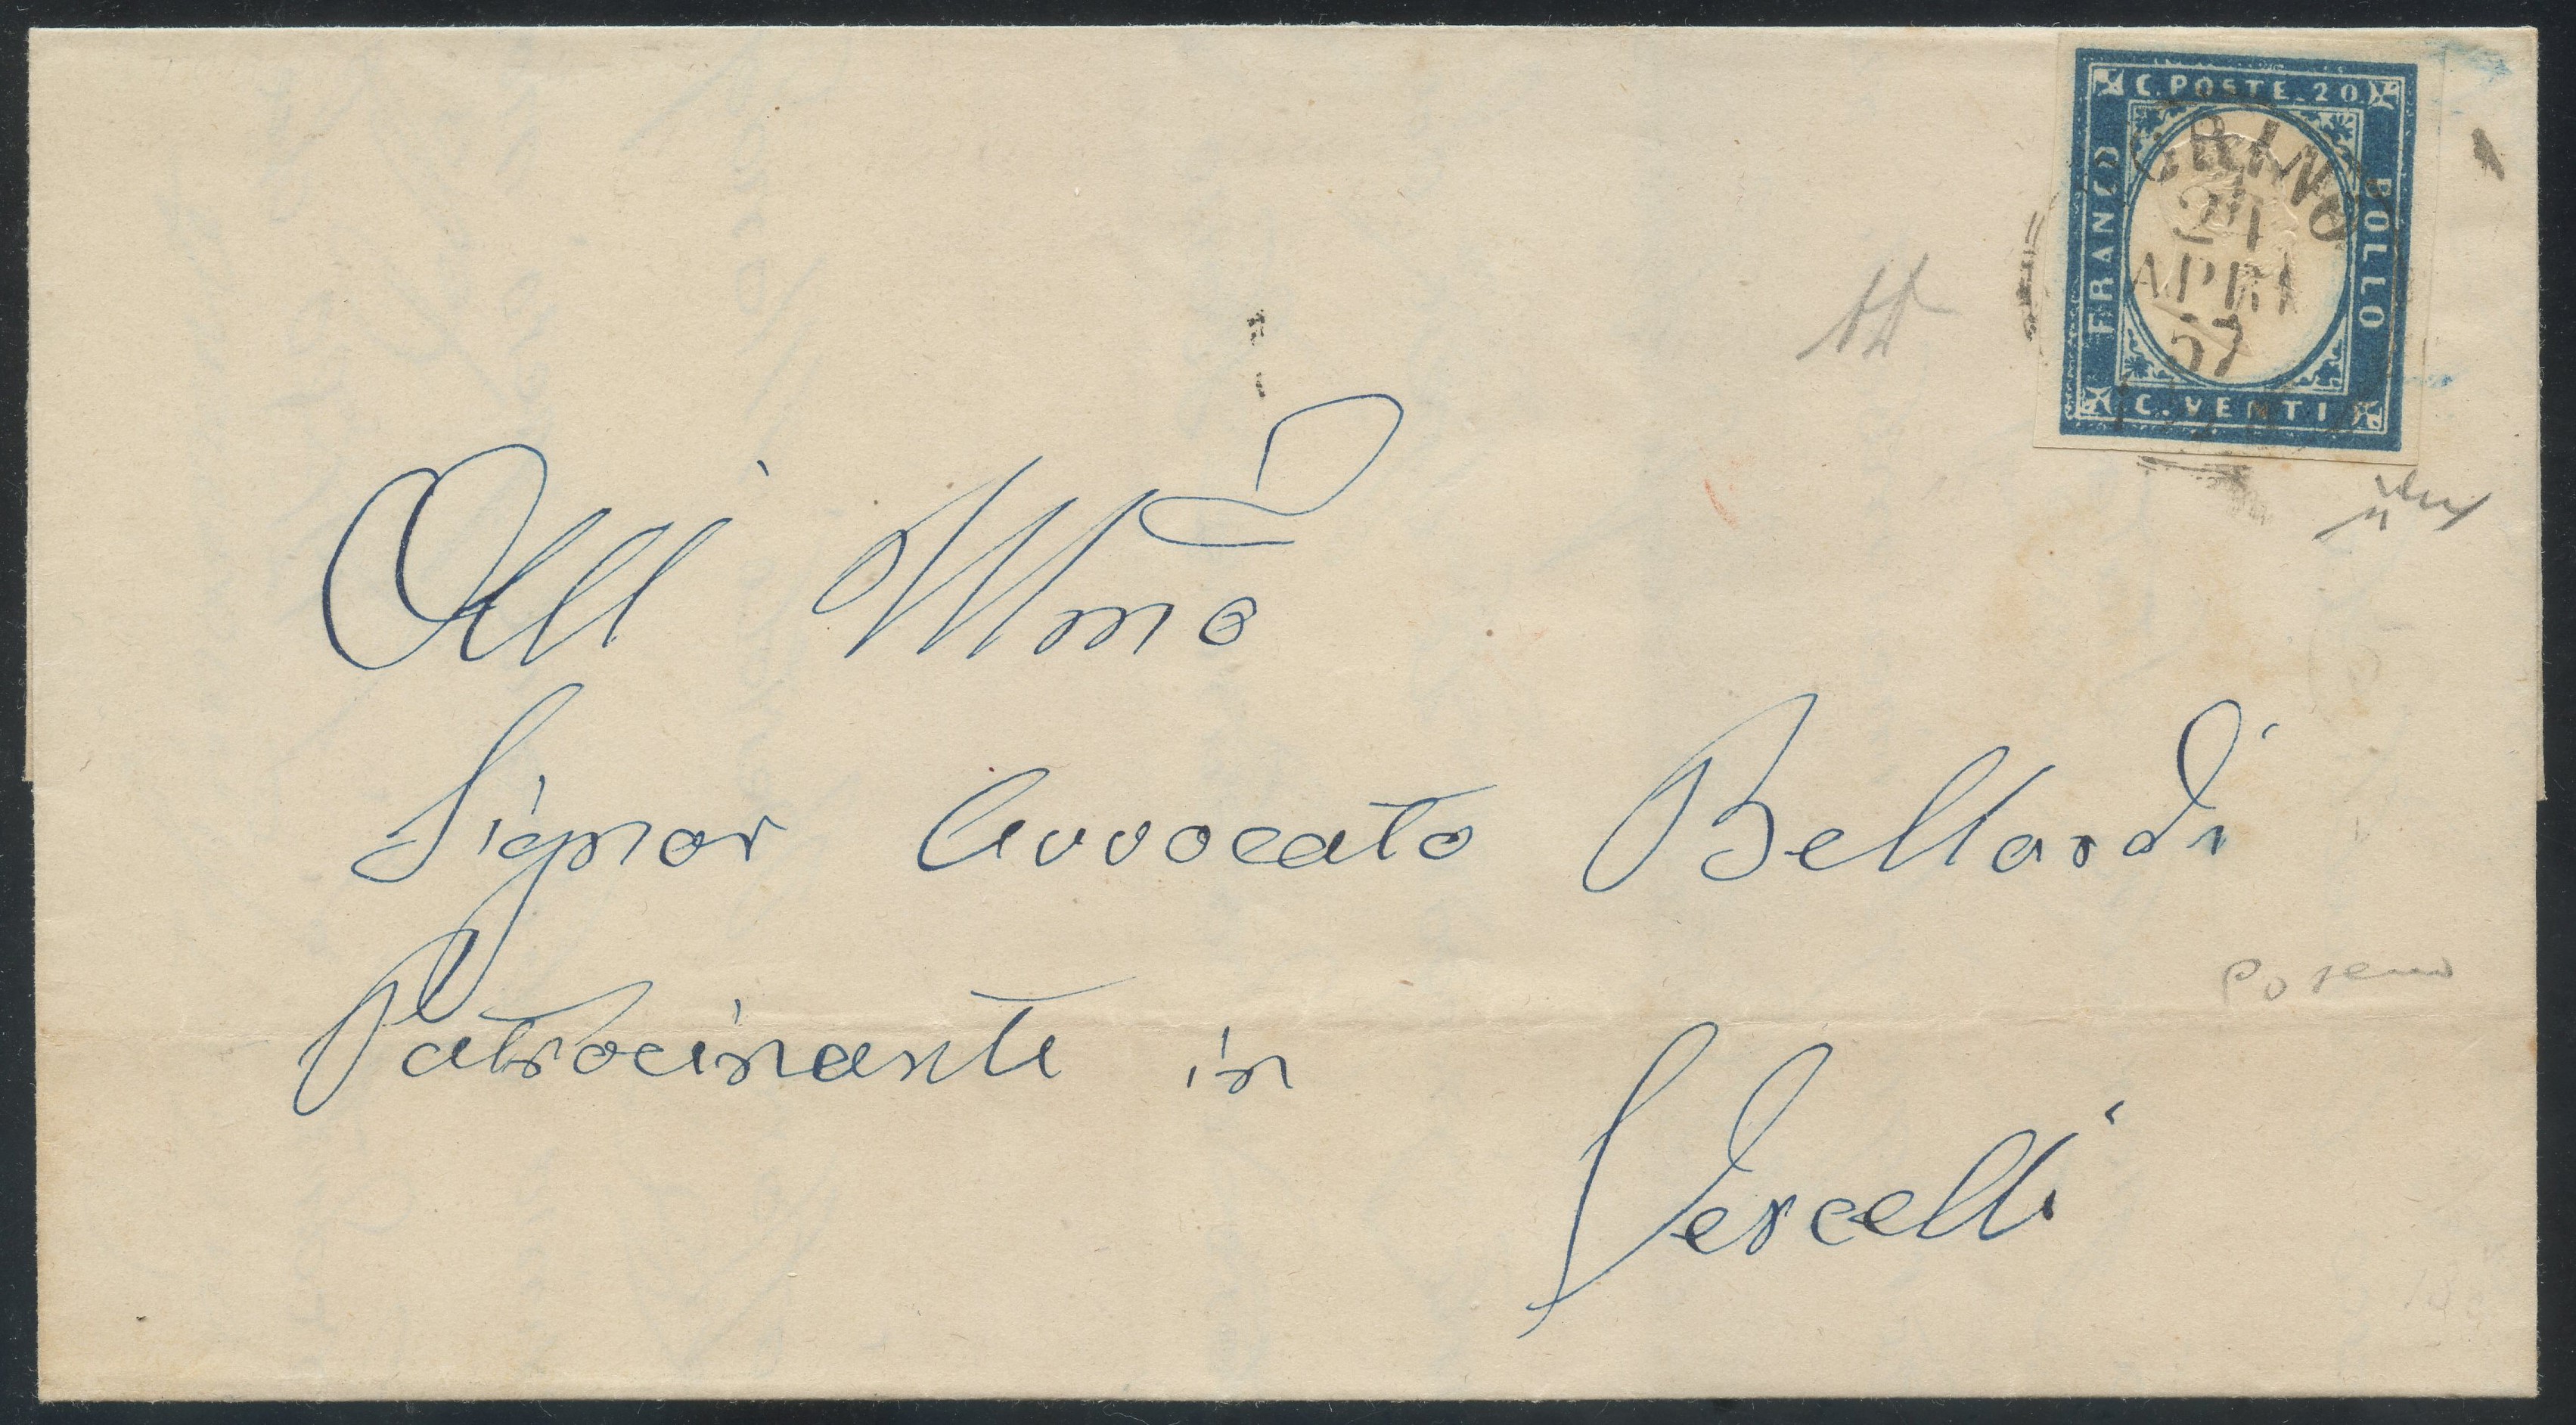 C. POSTE. 20
FRANCO
BOLLO
C. VENTI
24
APRI
57
All' Illmo
Signor Avvocato Bellardi
Patrocinante in
Vercelli